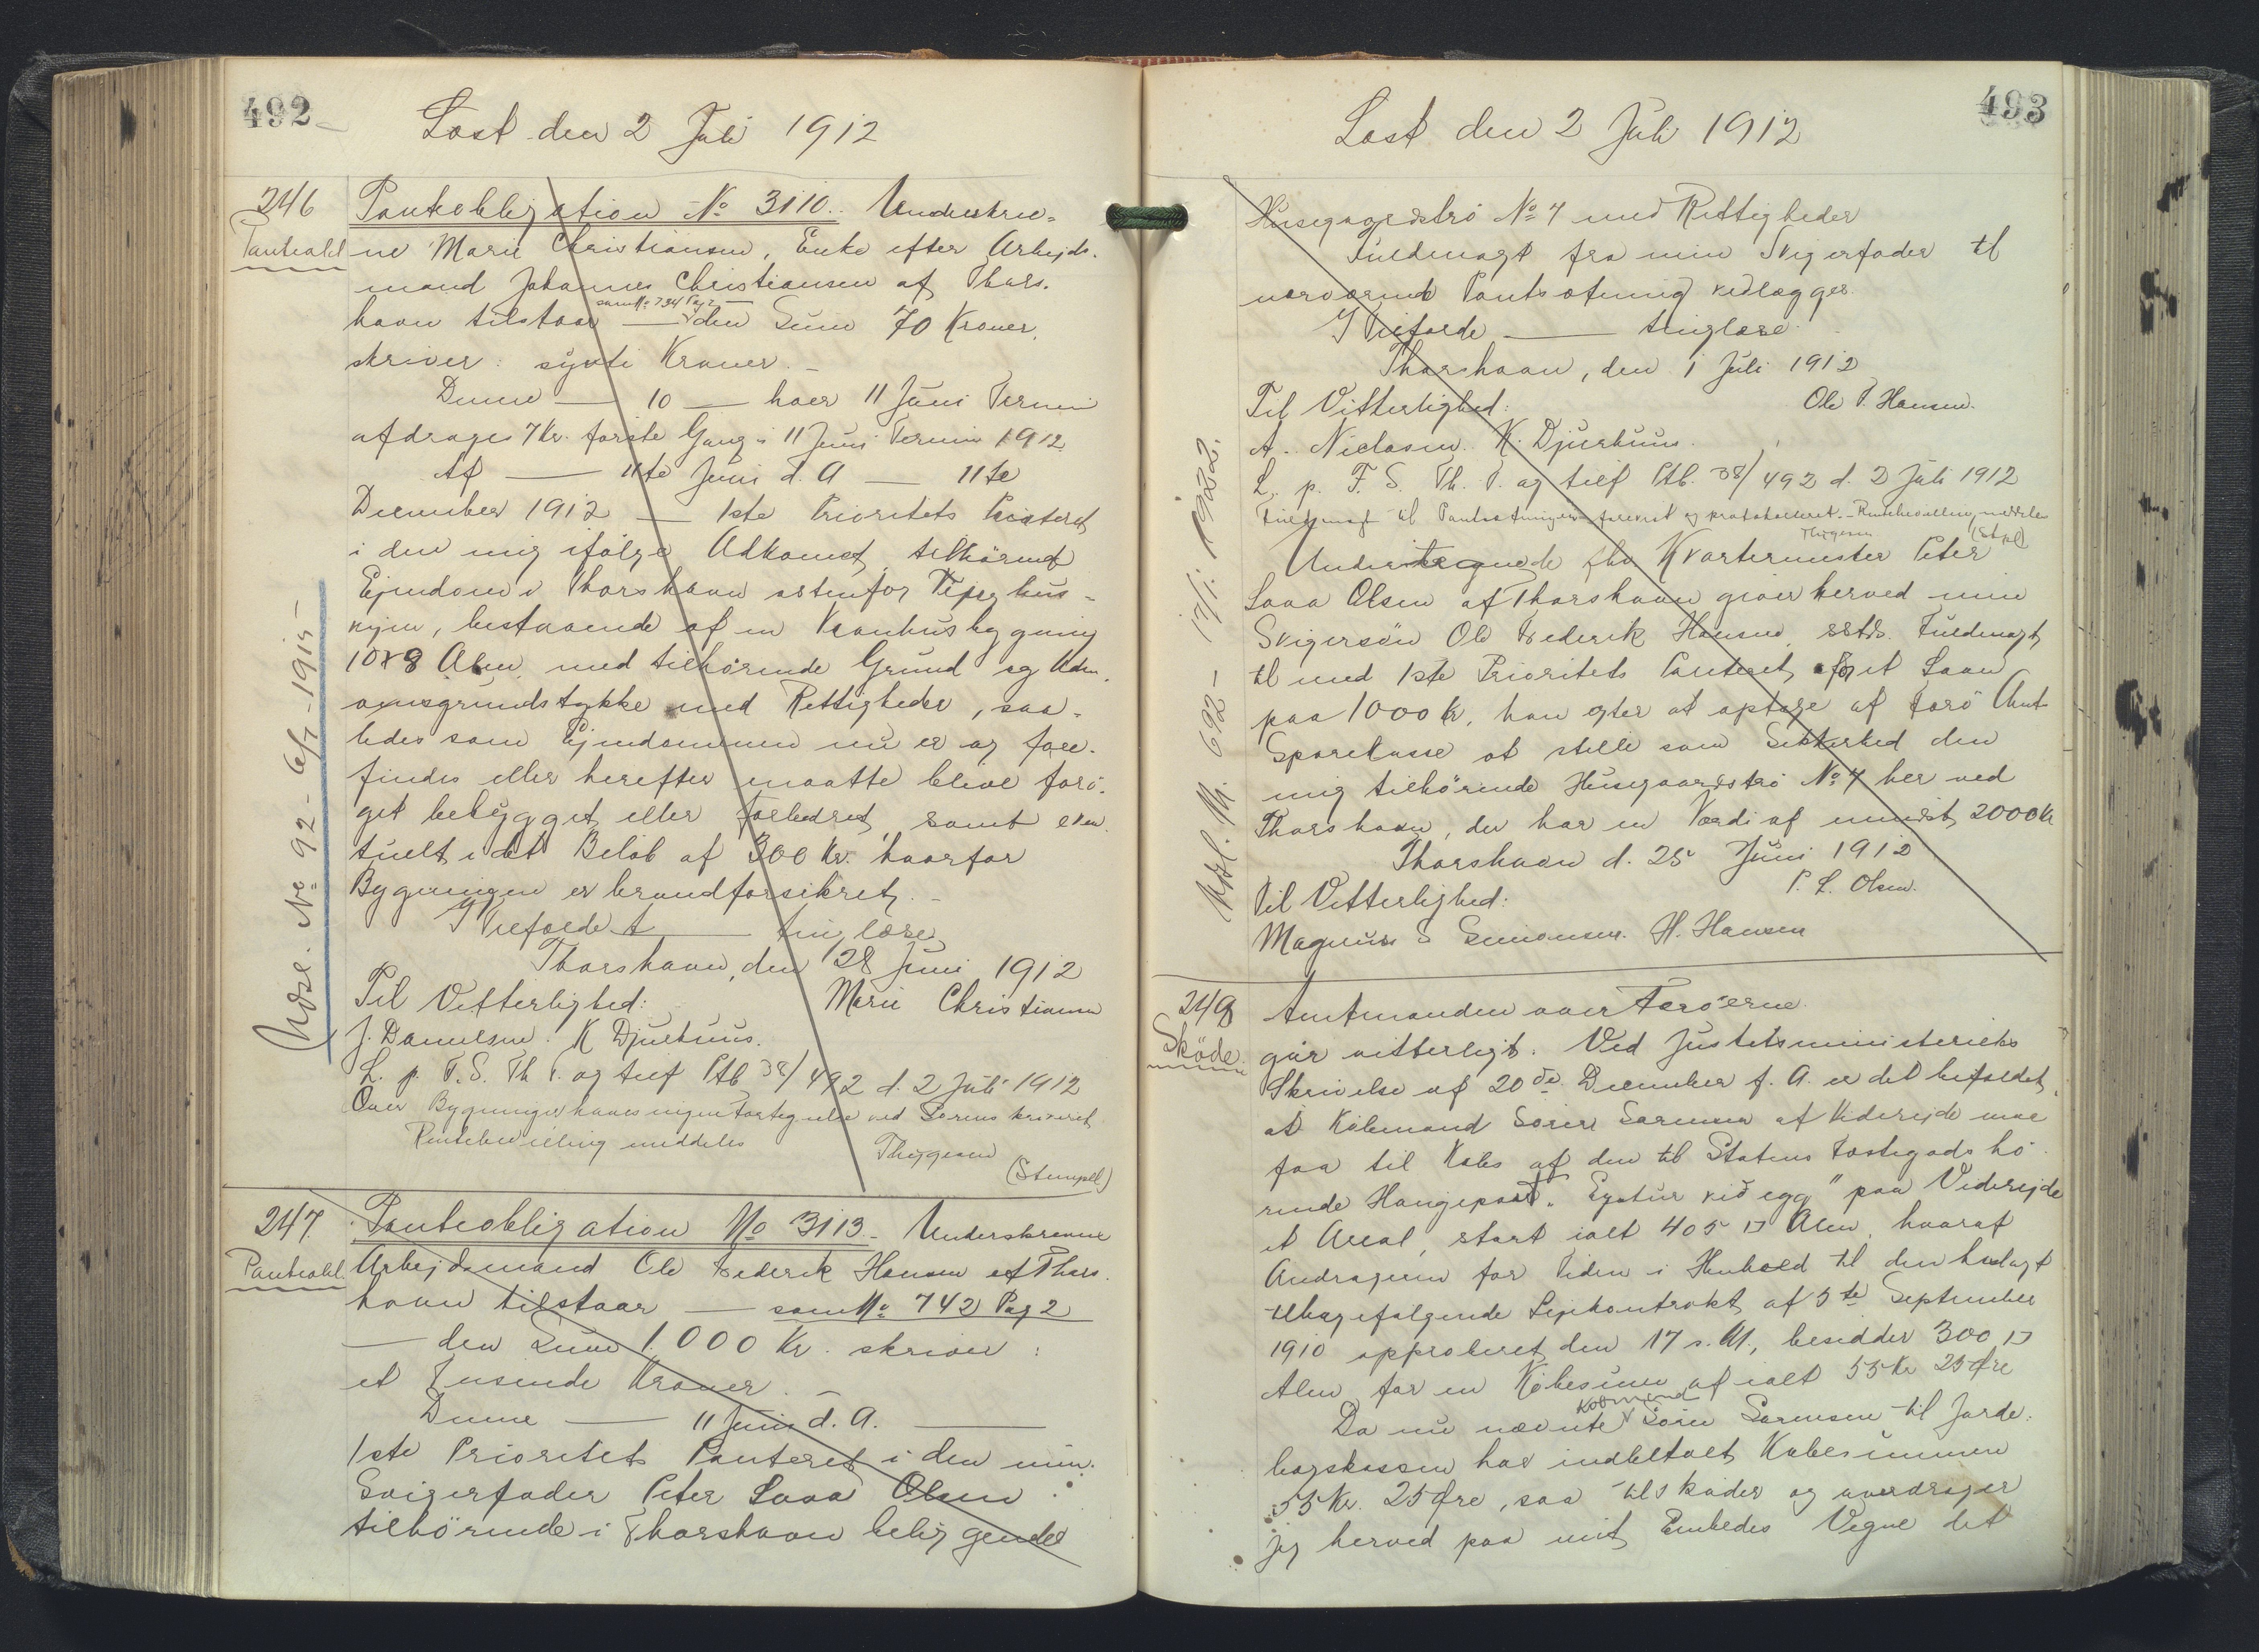 492
Læst den 2 Juli 1912
246
Panteobl
Panteobligation No 3110. Underskrev-
ne Marie Christiansen, Enke efter Arbejds-
mand Johannes Christiansen af Thors-
havn tilstaar — den Sum 70 Kroner,
som No 734 Pag 2
skriver: syvti Kroner. -
Denne — 10 — hver 11 Juni Termin
afdrages 7 Kr. første Gang i 11 Juni Termin 1912
Af — 11te Juni d. A — 11te
December 1912 — 1ste Prioritets Panteret
i den mig ifølge Adkomst tilhørende
Ejendom i Thorshavn østenfor
vejen, bestaaende af en Vaanhusbygning
10 x 8 Alen med tilhørende Grund og Uden-
omsgrundstykke med Rettigheder, saa-
ledes som Ejendommen nu er og fore-
findes eller herefter maatte blive forø-
get bebygget eller forbedret, samt even-
tuelt i det Beløb af 300 Kr. hvorfor
Bygningen er brandforsikret. -
I Tilfælde — tinglæse
Thorshavn, den 28 Juni 1912
Til Vitterlighed: Marie Christiansen
J. Danielsen. K Djurhuus.
L. p. F. S. Th. T. og tilf Ptb 38/492 d. 2 Juli 1912
Over Bygninger haves ingen Fortegnelse ved Sorenskriveriet
Rentebevilling meddeles Thygesen
(Stempel)
Udsl. No 92 - 6/7 - 1915 -
247.
Panteobl.
Panteobligation No 3113 - Underskrevne
Arbejdsmand Ole Frederik Hansen af Thors-
havn tilstaar — som No 742 Pag 2
— den Sum 1.000 Kr. skriver:
et Tusinde Kroner. -
Denne — 11 Juni d. A. —
1ste Prioritets Panteret i den min
Svigerfader Peter Sava Olsen
tilhørende i Thorshavn beliggende
493
Læst den 2 Juli 1912
Husegagrdstrø No 7 med Rettigheder
Fuldmagt fra min Svigerfader til
nærværende Pantsætning vedlægges.
I Tilfælde — tinglæse.
Thorshavn, den 1 Juli 1912
Til Vitterlighed: Ole F. Hansen.
A. Niclasen. K. Djurhuus.
L. p. F. S. Th. T. og tilf Ptb. 38/492 d. 2 Juli 1912
Fuldmagt til Pantsætningen forevist og protokolleret. - Rentebevilling meddeles
Thygesen (Stpl)
Undertegnede fhv Kvartermester Peter
Sava Olsen af Thorshavn giver herved min
Svigersøn Ole Frederik Hansen sstds. Fuldmagt
til med 1ste Prioritets Panteret for et Laan
paa 1000 Kr, han agter at optage af Færø Amts
Sparekasse at stille som Sikkerhed den
mig tilhørende Husegaardstrø No 7 her ved
Thorshavn, der har en Værdi af mindst 2000 Kr
Thorshavn d. 25 Juni 1912
P. S. Olsen.
Til Vitterlighed:
Magnus S Simonsen. H. Hansen
Udsl. No. 692 - 13/1. 1922.
248
Skøde.
Amtmanden over Færøerne
gør vitterligt: Ved Justitsministeriets
Skrivelse af 20de December f. A. er det bifaldet,
at Købmand Sørin Sørensen af Viderejde maa
faa til Købs af den til Statens Fæstegods hø-
rende Haugepart " Eystur við egg" paa Viderejde
et Areal, stort ialt 405 □ Alen, hvoraf
Andrageren for Tiden i Henhold til den hoslagt
tilbagefølgende Lejekontrakt af 5te September
1910 approberet den 17 s. M., besidder 300 □
Alen, for en Købesum af ialt 55 Kr 25 Øre
Købmand
Da nu nævnte Sørin Sørensen til Jorde-
bogskassen har indbetalt Købesummen
55 Kr. 25 Øre, saa tilskøder og overdrager
jeg herved paa mit Embedes Vegne det